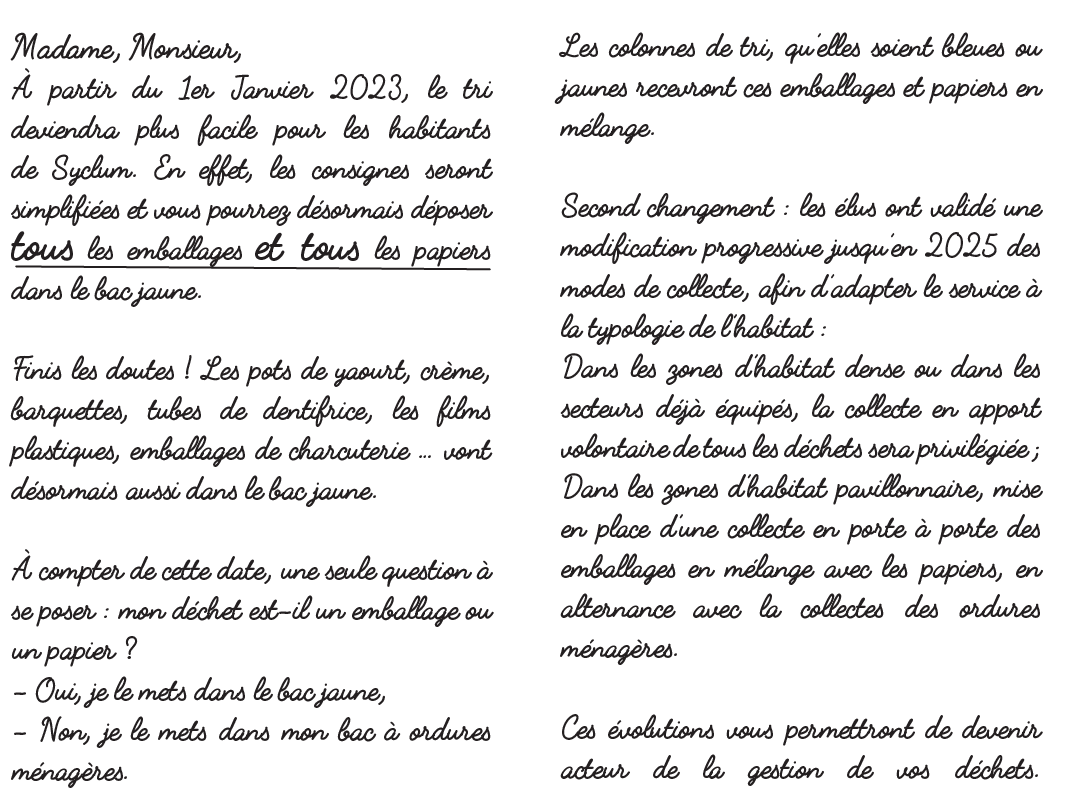 Madame, Monsieur,
À partir du 1er Janvier 2023, le tri
deviendra plus facile pour les habitants
de Syclum. En effet, les consignes seront
simplifiées et vous pourrez désormais déposer
tous les emballages et tous les papiers
dans le bac jaune.
Finis les doutes ! Les pots de yaourt, crème,
barquettes, tubes de dentifrice, les films
plastiques, emballages de charcuterie ... vont
désormais aussi dans le bac jaune.
À compter de cette date, une seule question à
se poser : mon déchet est-il un emballage ou
un papier ?
- Oui, je le mets dans le bac jaune,
- Non, je le mets dans mon bac à ordures
ménagères.
Les colonnes de tri, qu'elles soient bleues ou
jaunes recevront ces emballages et papiers en
mélange.
Second changement : les élus ont validé une
modification progressive jusqu'en 2025 des
modes de collecte, afin d'adapter le service à
la typologie de l'habitat :
Dans les zones d'habitat dense ou dans les
secteurs déjà équipés, la collecte en apport
volontaire de tous les déchets sera privilégiée ;
Dans les zones d'habitat pavillonnaire, mise
en place d'une collecte en porte à porte des
emballages en mélange avec les papiers, en
alternance avec la collectes des ordures
ménagères.
Ces évolutions vous permettront de devenir
acteur de la gestion de vos déchets.